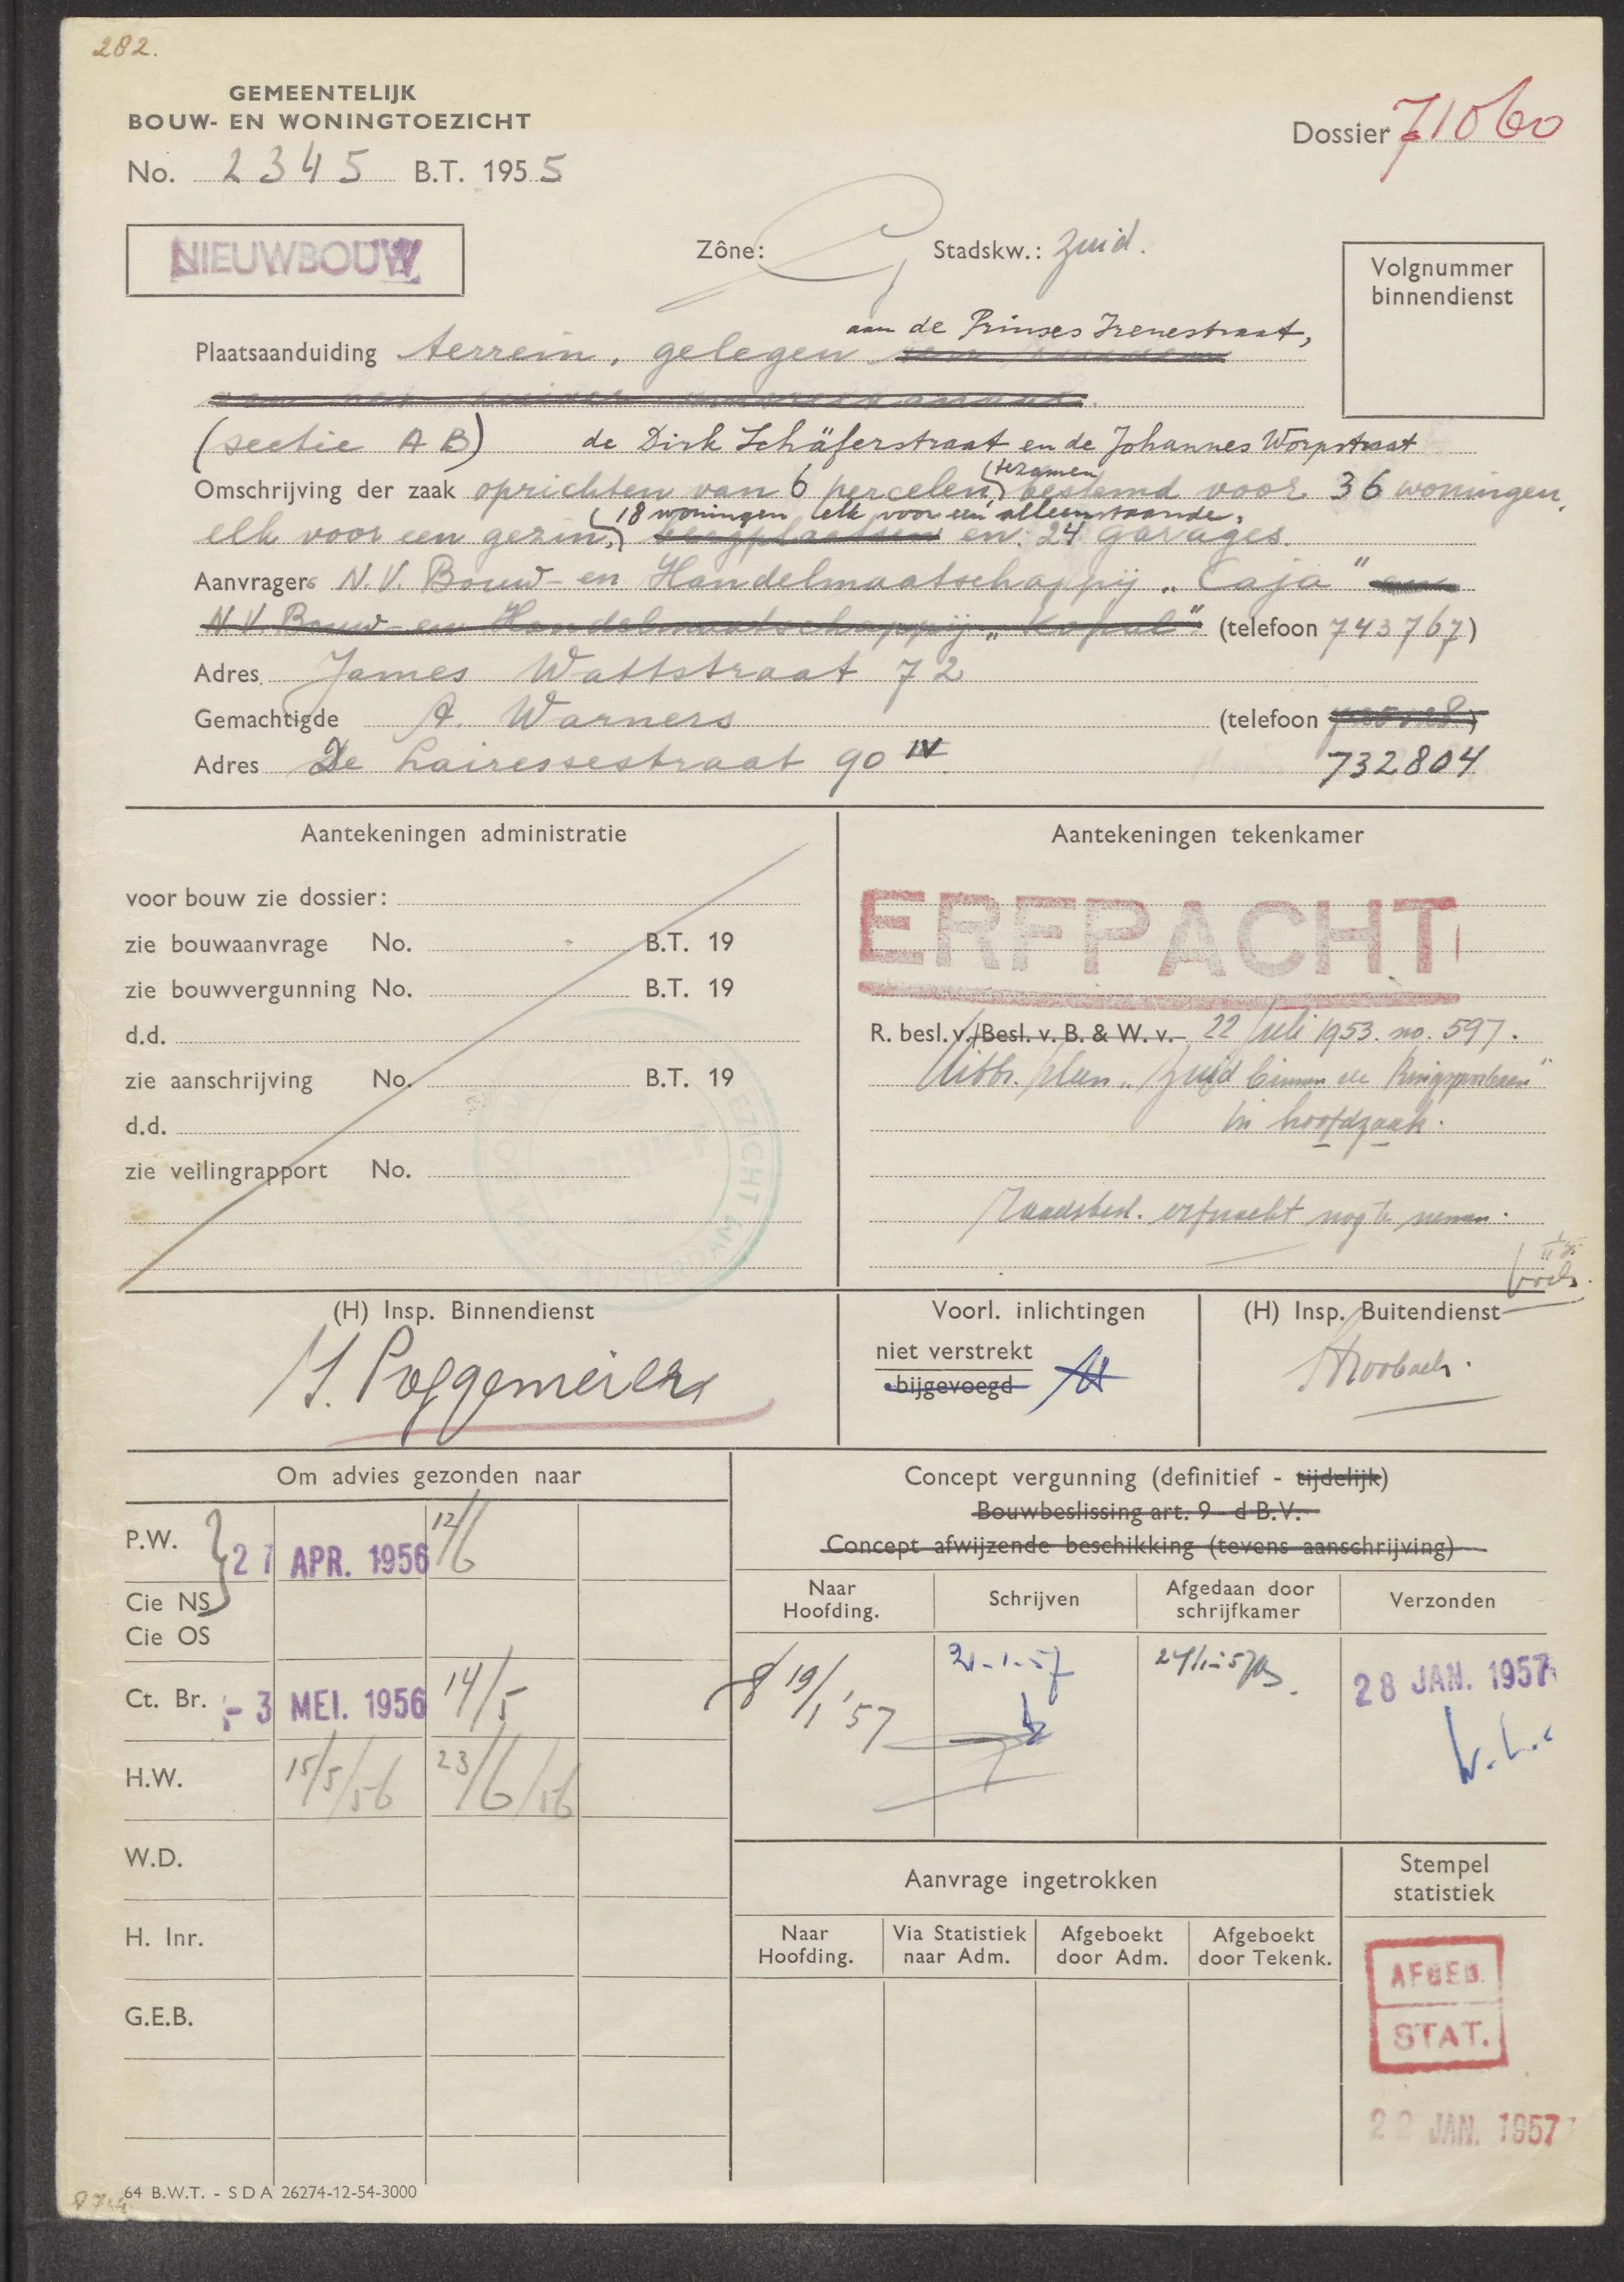 282.
GEMEENTELIJK
BOUW- EN WONINGTOEZICHT
Dossier 71060
No. 2345 B.T. 1955
NIEUWBOUW
Zône: Stadskw.: Zuid.
Volgnummer
binnendienst
aan de Prinses Irenestraat,
Plaatsaanduiding terrein, gelegen
(sectie AB) de Dirk Schäferstraat en de Johannes Worpstraat
(tezamen
Omschrijving der zaak oprichten van 6 percelen, bestemd voor 36 woningen,
(18 woningen elk voor een alleenstaande,
elk voor een gezin, bergplaatsen en 24 garages.
Aanvragers N.V. Bouw- en Handelmaatschappij "Caja" en
N.V. Bouw- en Handelmaatschappij "Kopul" (telefoon 743767)
Adres James Wattstraat 72
Gemachtigde A. Warners (telefoon
Adres De Lairessestraat 90 IV 732804
Aantekeningen administratie
voor bouw zie dossier:
zie bouwaanvrage No. B.T. 19
zie bouwvergunning No. B.T. 19
d.d.
zie aanschrijving No. B.T. 19
d.d.
zie veilingrapport No.
Aantekeningen tekenkamer
ERFPACHT
R. besl. v./Besl. v. B. & W. v. 22 Juli 1953. no. 597.
Uitbr. plan "Zuid binnen de Ringspoorbaan"
in hoofdzaak.
Raadsbesl. erfpacht nog te nemen.
(H) Insp. Binnendienst
Voorl. inlichtingen
niet verstrekt
bijgevoegd
(H) Insp. Buitendienst
Om advies gezonden naar
P.W. 27 APR. 1956 12/6
Cie NS
Cie OS
Ct. Br. -3 MEI. 1956 14/5
H.W. 15/5/56 23/6/56
W.D.
H. Inr.
G.E.B.
Concept vergunning (definitief - tijdelijk)
Bouwbeslissing art. 9 - d B.V.
Concept afwijzende beschikking (tevens aanschrijving)
Naar
Hoofding.
Schrijven
Afgedaan door
schrijfkamer
Verzonden
19/1 '57
21-1-57
28 JAN. 1957
Aanvrage ingetrokken
Stempel
statistiek
Naar
Hoofding.
Via Statistiek
naar Adm.
Afgeboekt
door Adm.
Afgeboekt
door Tekenk.
AFGEB.
STAT.
22 JAN. 1957
64 B.W.T. - SDA 26274-12-54-3000